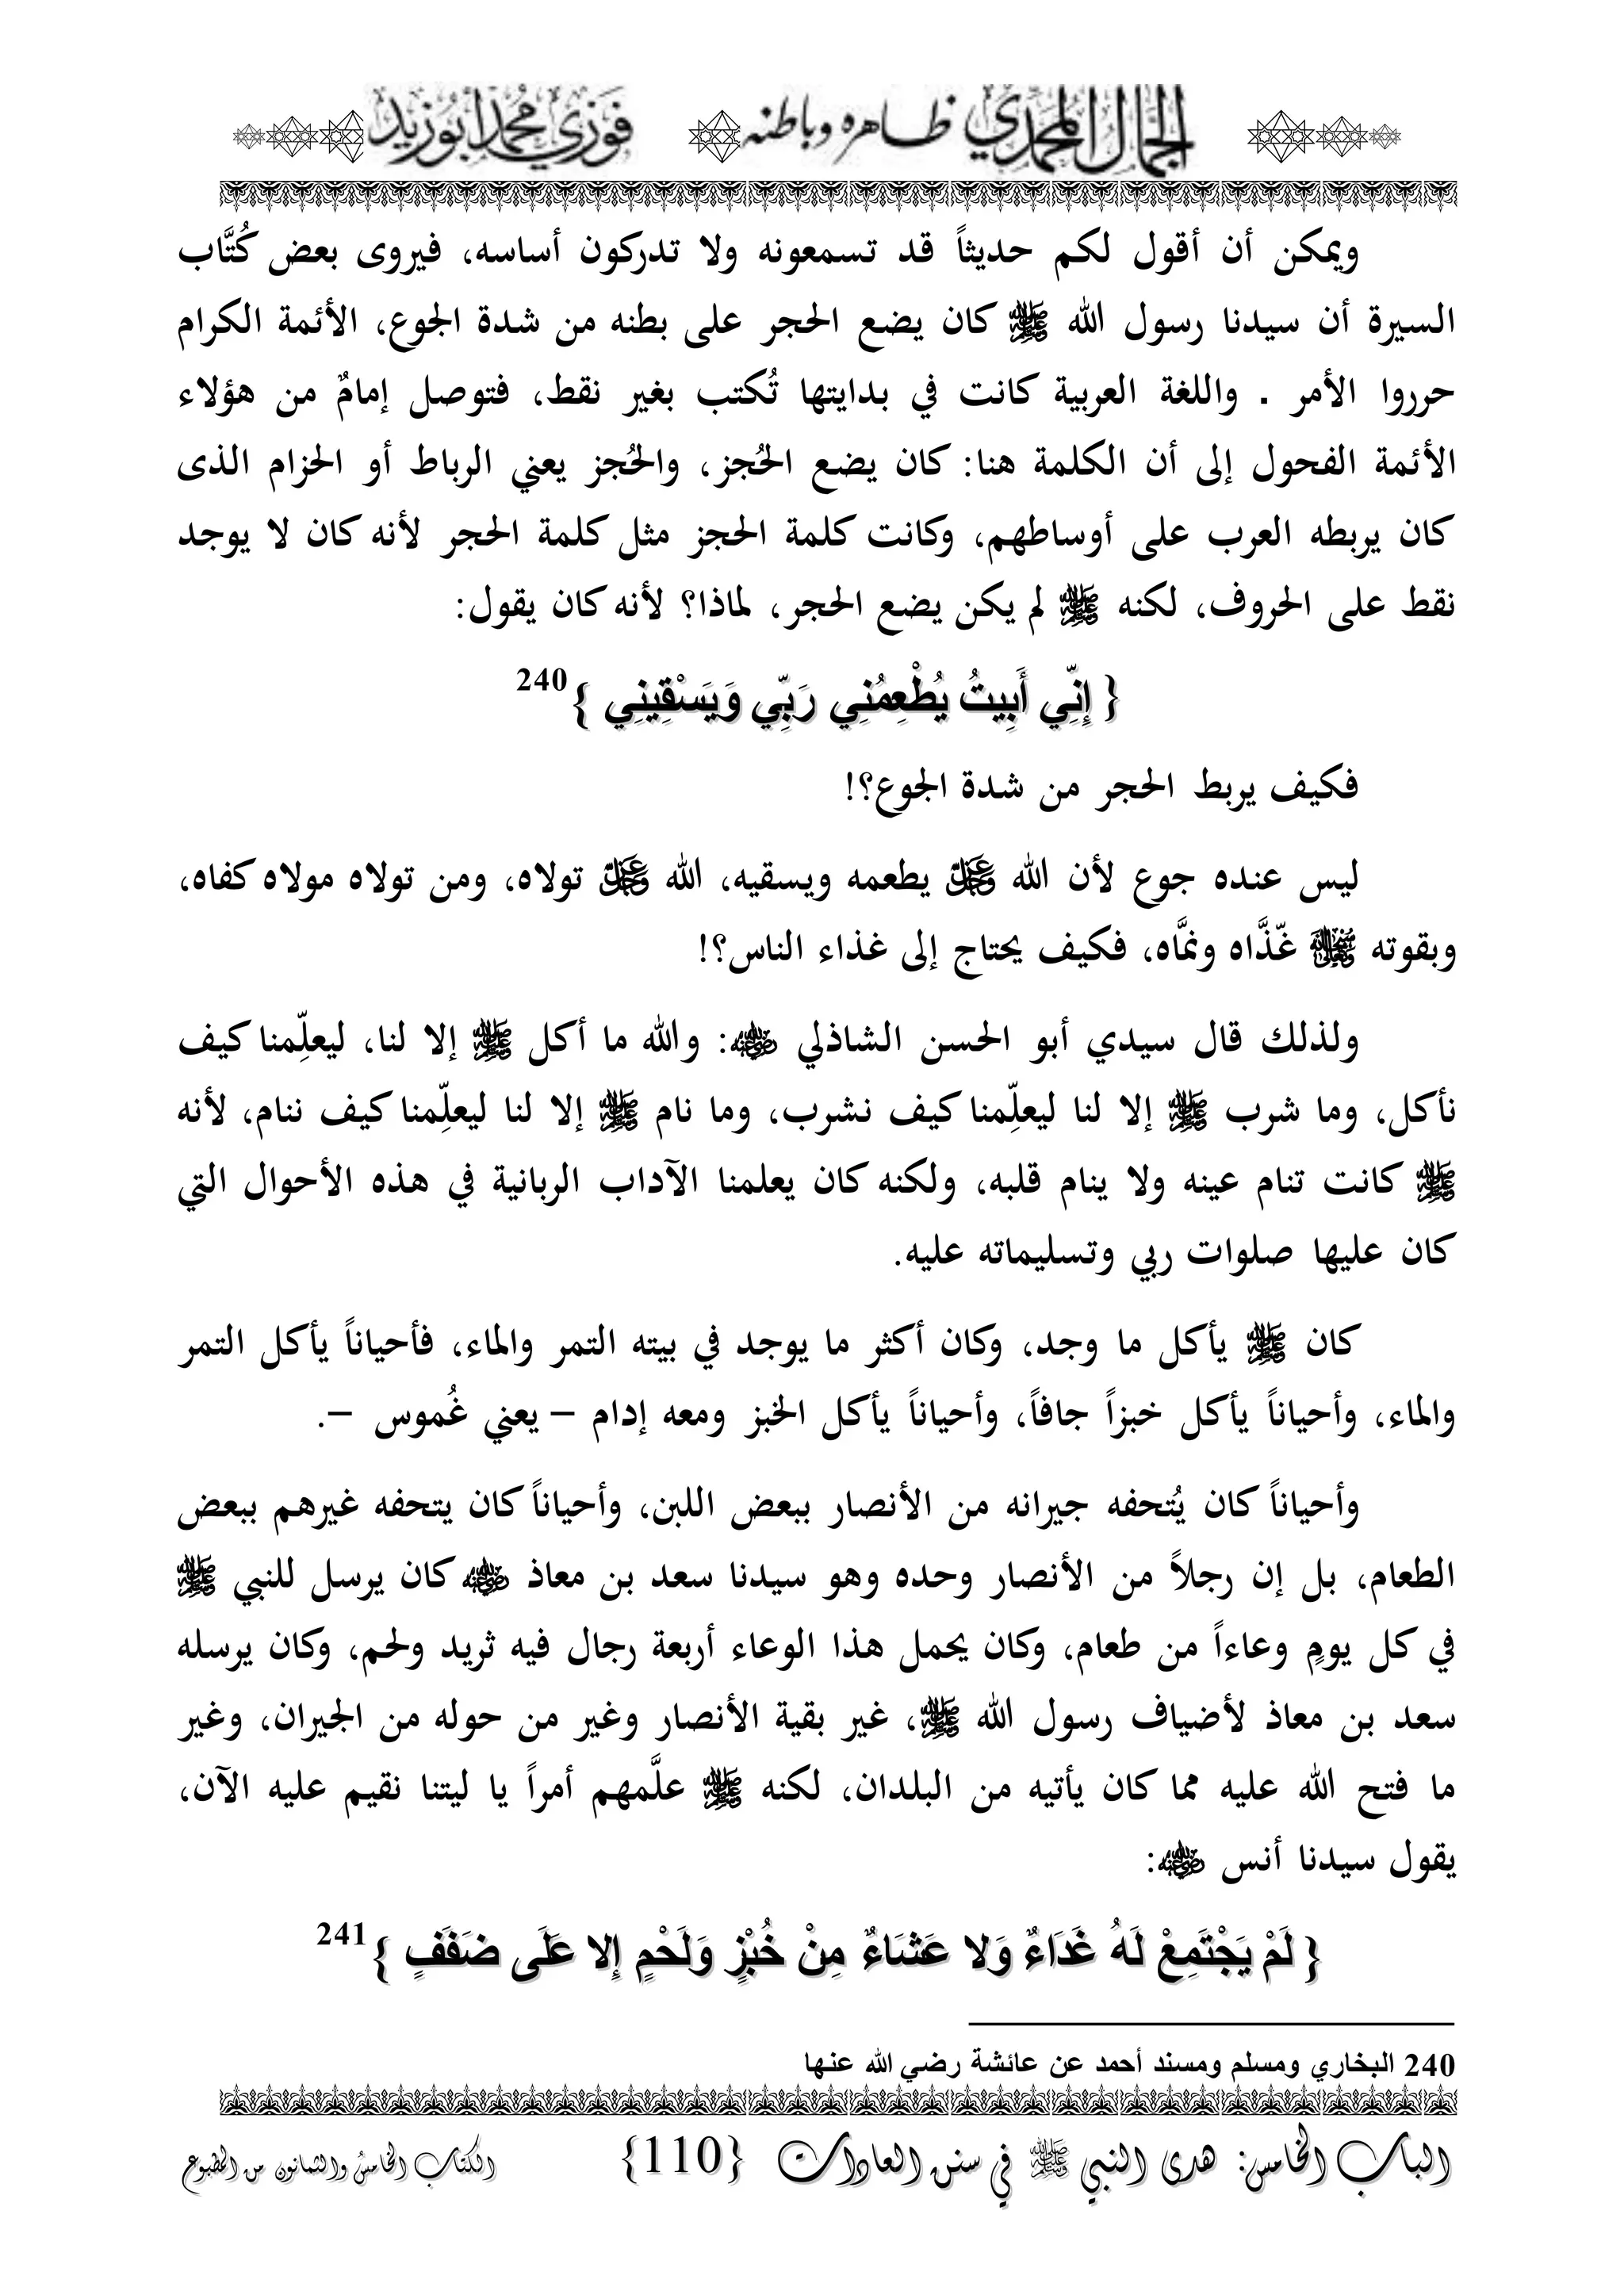 الجمال المحمدي ظاهره وباطنه فوزي محمد أبوزيد
ويمكن أن أقول لكم حديثاً قد تسمعونه ولا تدركون أساسه، فيروى بعض كُتَّاب
السيرة أن سيدنا رسول الله ﷺ كان يضع الحجر على بطنه من شدة الجوع، الأئمة الكرام
حرروا الأمر . واللغة العربية كانت في بدايتها تُكتب بغير نقط، فتوصل إمامٌ من هؤلاء
الأئمة الفحول إلى أن الكلمة هنا: كان يضع الحُجز، والحُجز يعني الرباط أو الحزام الذى
كان يربطه العرب على أوساطهم، وكانت كلمة الحجز مثل كلمة الحجر لأنه كان لا يوجد
نقط على الحروف، لكنه ﷺ لم يكن يضع الحجر، لماذا؟ لأنه كان يقول:
{ إِنِّي أَبِيتُ يُطْعِمُنِي رَبِّي وَيَسْقِينِي }240
فكيف يربط الحجر من شدة الجوع؟!
ليس عنده جوع لأن الله ﷻ يطعمه ويسقيه، الله ﷻ تولاه، ومن تولاه مولاه كفاه،
وبقوته ﷻ غذَّاه ونمَّاه، فكيف يحتاج إلى غذاء الناس؟!
ولذلك قال سيدي أبو الحسن الشاذلي ؓ: والله ما أكل ﷺ إلا لنا، ليعلِّمنا كيف
نأكل، وما شرب ﷺ إلا لنا ليعلِّمنا كيف نشرب، وما نام ﷺ إلا لنا ليعلِّمنا كيف ننام، لأنه
ﷺ كانت تنام عينه ولا ينام قلبه، ولكنه كان يعلمنا الآداب الربانية في هذه الأحوال التي
كان عليها صلوات ربي وتسليماته عليه.
كان ﷺ يأكل ما وجد، وكان أكثر ما يوجد في بيته التمر والماء، فأحياناً يأكل التمر
والماء، وأحياناً يأكل خبزاً جافاً، وأحياناً يأكل الخبز ومعه إدام – يعني غُموس –.
وأحياناً كان يُتحفه جيرانه من الأنصار ببعض اللبن، وأحياناً كان يتحفه غيرهم ببعض
الطعام، بل إن رجلاً من الأنصار وحده وهو سيدنا سعد بن معاذ ؓ كان يرسل للنبي ﷺ
في كل يومٍ وعاءاً من طعام، وكان يحمل هذا الوعاء أربعة رجال فيه ثريد ولحم، وكان يرسله
سعد بن معاذ لأضياف رسول الله ﷺ، غير بقية الأنصار وغير من حوله من الجيران، وغير
ما فتح الله عليه مما كان يأتيه من البلدان، لكنه ﷺ علَّمهم أمراً يا ليتنا نقيم عليه الآن،
يقول سيدنا أنس ؓ:
{ لَمْ يَجْتَمِعْ لَهُ غَدَاءٌ وَلا عَشَاءٌ مِنْ خُبْزٍ وَلَحْمٍ إِلا عَلَى ضَفَفٍ }241
240 البخاري ومسلم ومسند أحمد عن عائشة رضي الله عنها
الباب الخامس: هدى النبي ﷺ في سنن العادات {110} الكتاب الخامس والثمانون من المطبوع